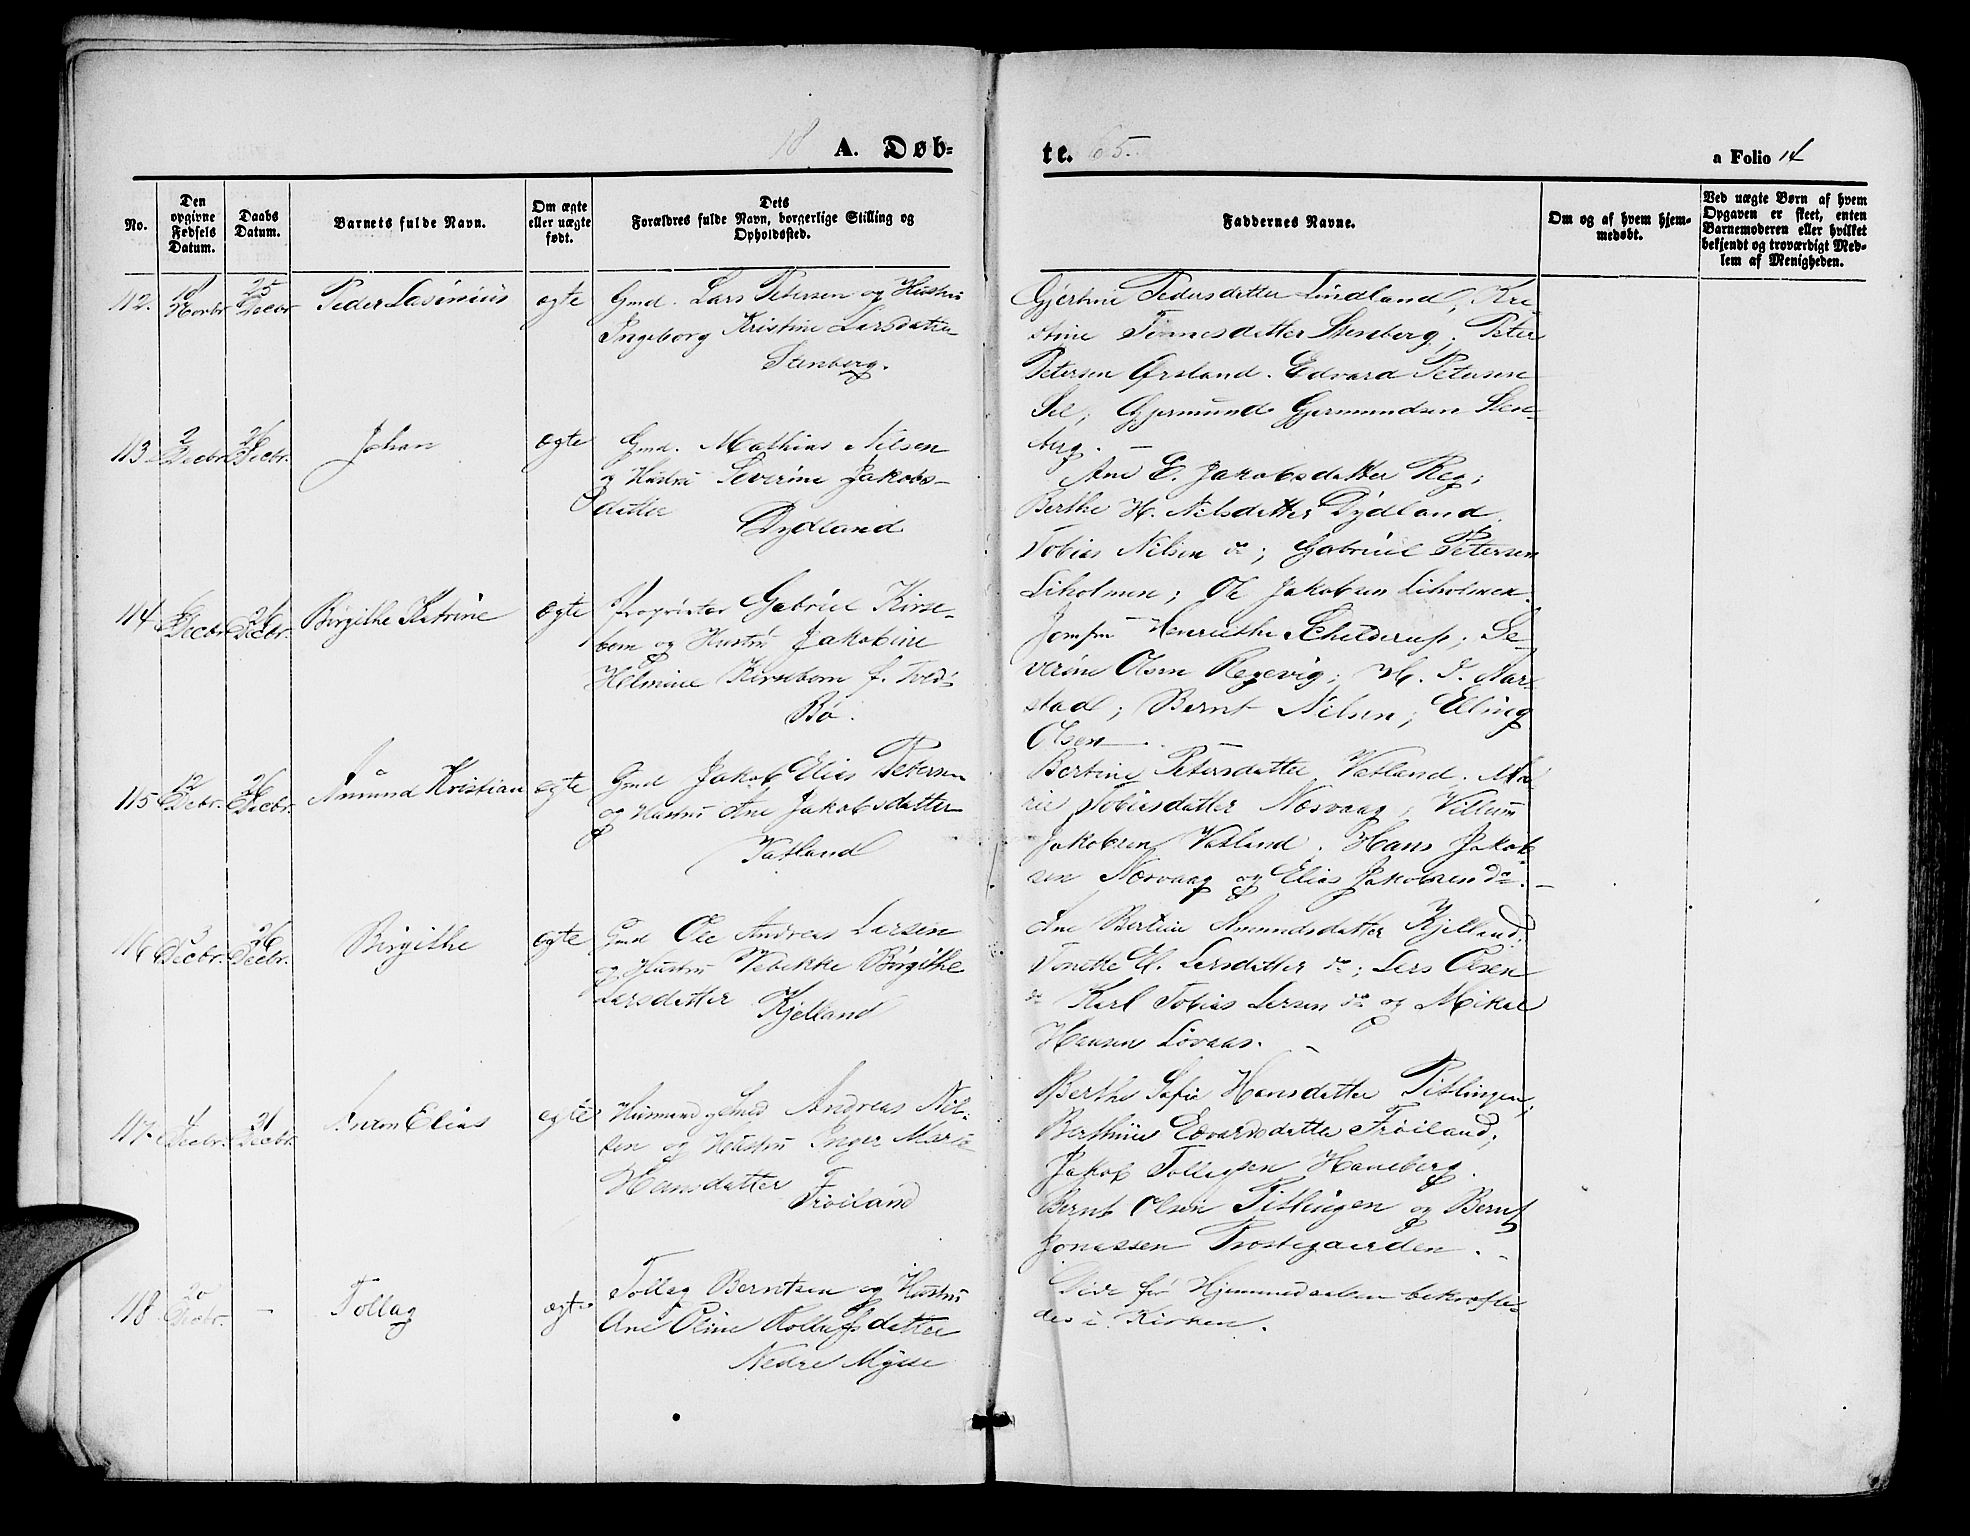 18 A. Døb-
te. 65.
a Folio 14
No.
Den opgivne Fødsels Datum.
Daabs Datum.
Barnets fulde Navn.
Om ægte eller uægte født.
Dets Forældres fulde Navn, borgerlige Stilling og Opholdssted.
Faddernes Navne.
Om og af hvem hjemmedøbt.
Ved uægte Børn af hvem Opgaven er skeet, enten Barnemoderen eller hvilket bekjendt og troværdigt Medlem af Menigheden.
112. Novbr 25 Decbr Peder Lasinius ægte Gmd. Lars Petersen og Hustru
Ingeborg Kristine Larsdatter
Stenberg.
Gjertine Pedersdatter Lindland, Kri
stine Tønnesdatter Stenberg; Peter
Petersen Ørsland. Edvard Petersen
Sel; Gjermund Gjermundsen Sten-
berg. —
113 2 Decbr 26 Decbr. Johan ægte Gmd. Mathias Nilsen
og Hustru Severine Jakobs-
datter
Dydland
Ane E. Jakobsdatter Reg;
Berthe H. Nilsdatter Dydland.
Tobias Nilsen do; Gabriel Petersen
Liholmen; Ole Jakobsen Liholmen.
114 Decbr 26 Decbr. Birgithe Katrine ægte Proprietær Gabriel Kirse-
bom og Hustru Jakobine
Helmine Kirsebom f. Tved:
Bø.
Jomfru Henriethe Schelderup; Se-
verine Olsen Regevig; M. J. Nar-
stad; Bernt Nilsen; Elling
Olsen —
115 12 Debr. 26 Decbr. Amund Kristian ægte Gmd Jakob Elias Petersen
og Hustru Ane Jakobsdatter
Vatland
Bertine Petersdatter Vatland. Ma
rie Tobiasdatter Nesvaag; Villum
Jakobsen Vatland. Hans Jakob
sen Nesvaag og Elias Jakobsen do. —
116 3 Decbr. 26 Decbr. Birgithe ægte Gmd Ole Andreas Larsen
og Hustru Vebekke Birgithe
Larsdatter Kjelland
Ane Bertine Amundsdatter Kjelland;
Tonette E. Larsdatter do; Lars Olsen
do Karl Tobias Larsen do og Mikal
Hansen Lovaas. —
117. 4 Decbr. Decbr. Anton Elias ægte Husmand og Smed Andreas Nil-
sen og Hustru Inger Marie
Hansdatter Frøiland
Berthe Sofie Hansdatter Pitlingen;
Berthine Edvardsdatter Frøiland;
Jakob Tollagsen Haneberg.
Bernt Olsen Pitlingen og Bernt
Jonassen Prostegaarden. —
118. 20 Decbr. — Tollag ægte Tollag Berntsen og Hustru
Ane Oline Rollufsdatter
Nedre Mysse
Døde før Hjemmedaaben bekræfte-
des i Kirken.